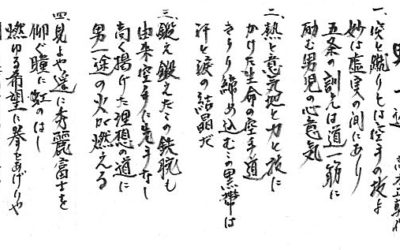 男一途
一、突と蹴りとは空手の技よ
妙は虚実の間にあり
五条の訓えは道一筋に
励む男児の心意気
二、熱と意気地と力と技に
かけた生命の空手道
きりり締め込むこの黒帯は
汗と涙の結晶だ
三、鍛え鍛えたこの鉄腕も
由来空手に先手なし
高く揚げた理想の道に
男一途の火が燃える
四、見よや遥に秀麗富士を
仰ぐ瞳に虹のはし
燃ゆる希望に拳をあげりや